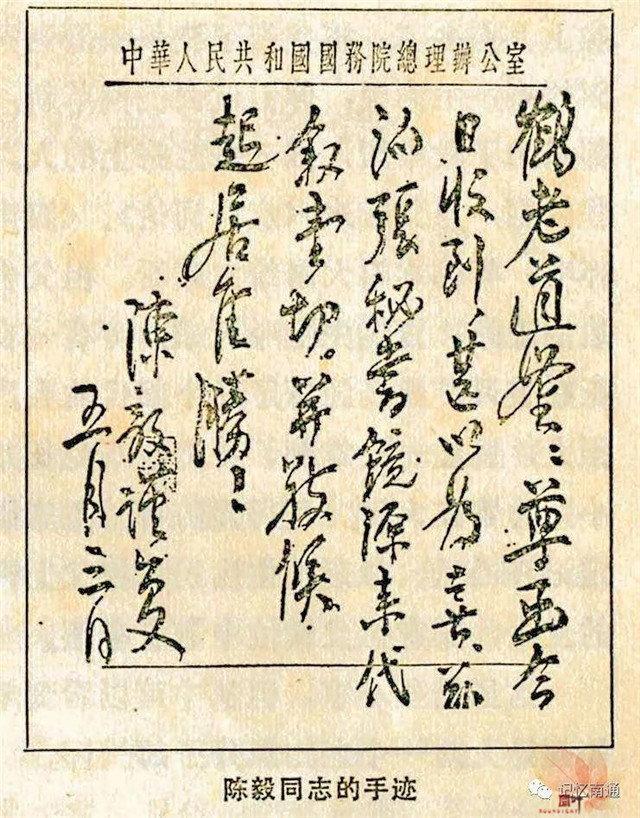 中華人民共和國國務院總理辦公室
鶴老道鑒：尊函今
日收到，甚以為喜。茲
派張秘書鏡源来代
叙壹切。並敬候
起居佳勝！
陳毅謹复
五月三日
陈毅同志的手迹
记忆南通